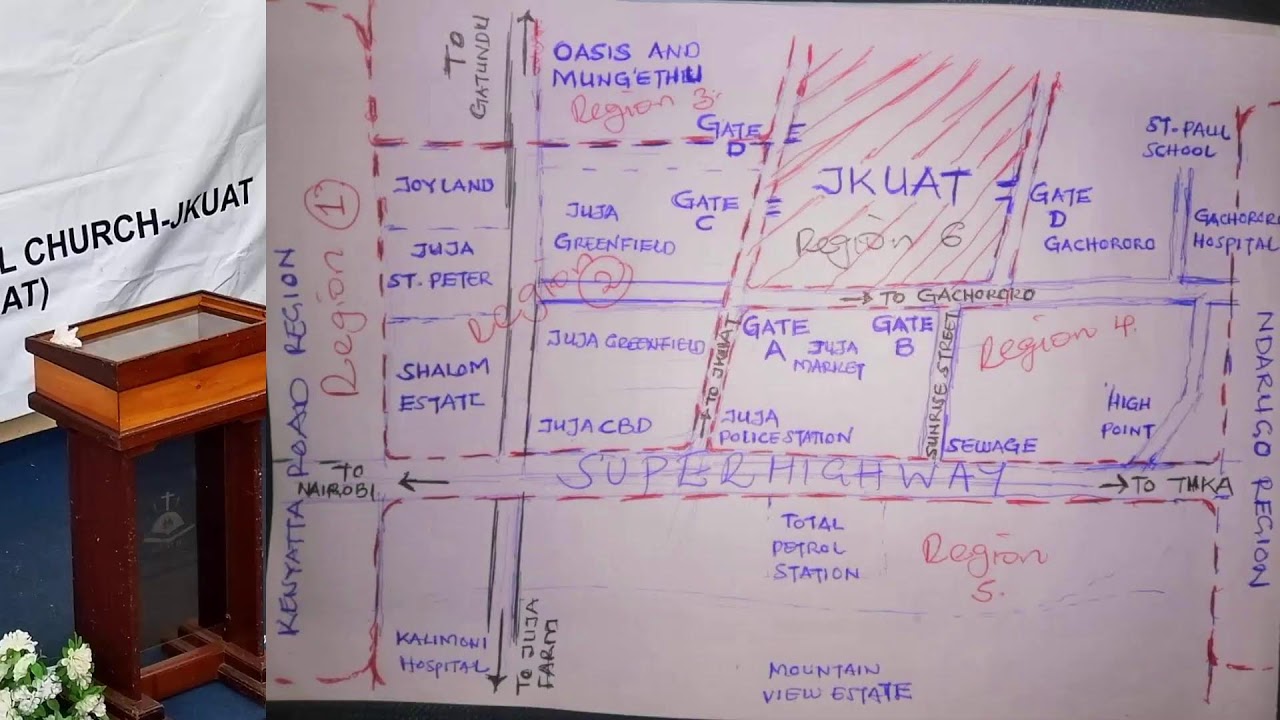 L CHURCH-JKUAT
AT)
TO
GATUNDU
OASIS AND
MUNG'ETHU
Region 3.
GATE
D
JKUAT
Region 6
GATE
C
GATE
D
GACHORORO
ST-PAUL
SCHOOL
GACHORORO
HOSPITAL
JOYLAND
JUJA
ST. PETER
SHALOM
ESTATE
JUJA
GREENFIELD
Region 2
Region 1
KENYATTA ROAD REGION
→ TO GACHORORO
JUJA GREENFIELD
JUJA CBD
→ TO JKUAT
GATE
A
JUJA
MARKET
GATE
B
SUNRISE STREET
Region 4.
JUJA
POLICE STATION
SEWAGE
HIGH
POINT
NDARUGO REGION
TO
NAIROBI
SUPERHIGHWAY
→ TO THKA
TOTAL
PETROL
STATION
Region
5.
KALIMONI
HOSPITAL
TO JUJA
FARM
MOUNTAIN
VIEW ESTATE